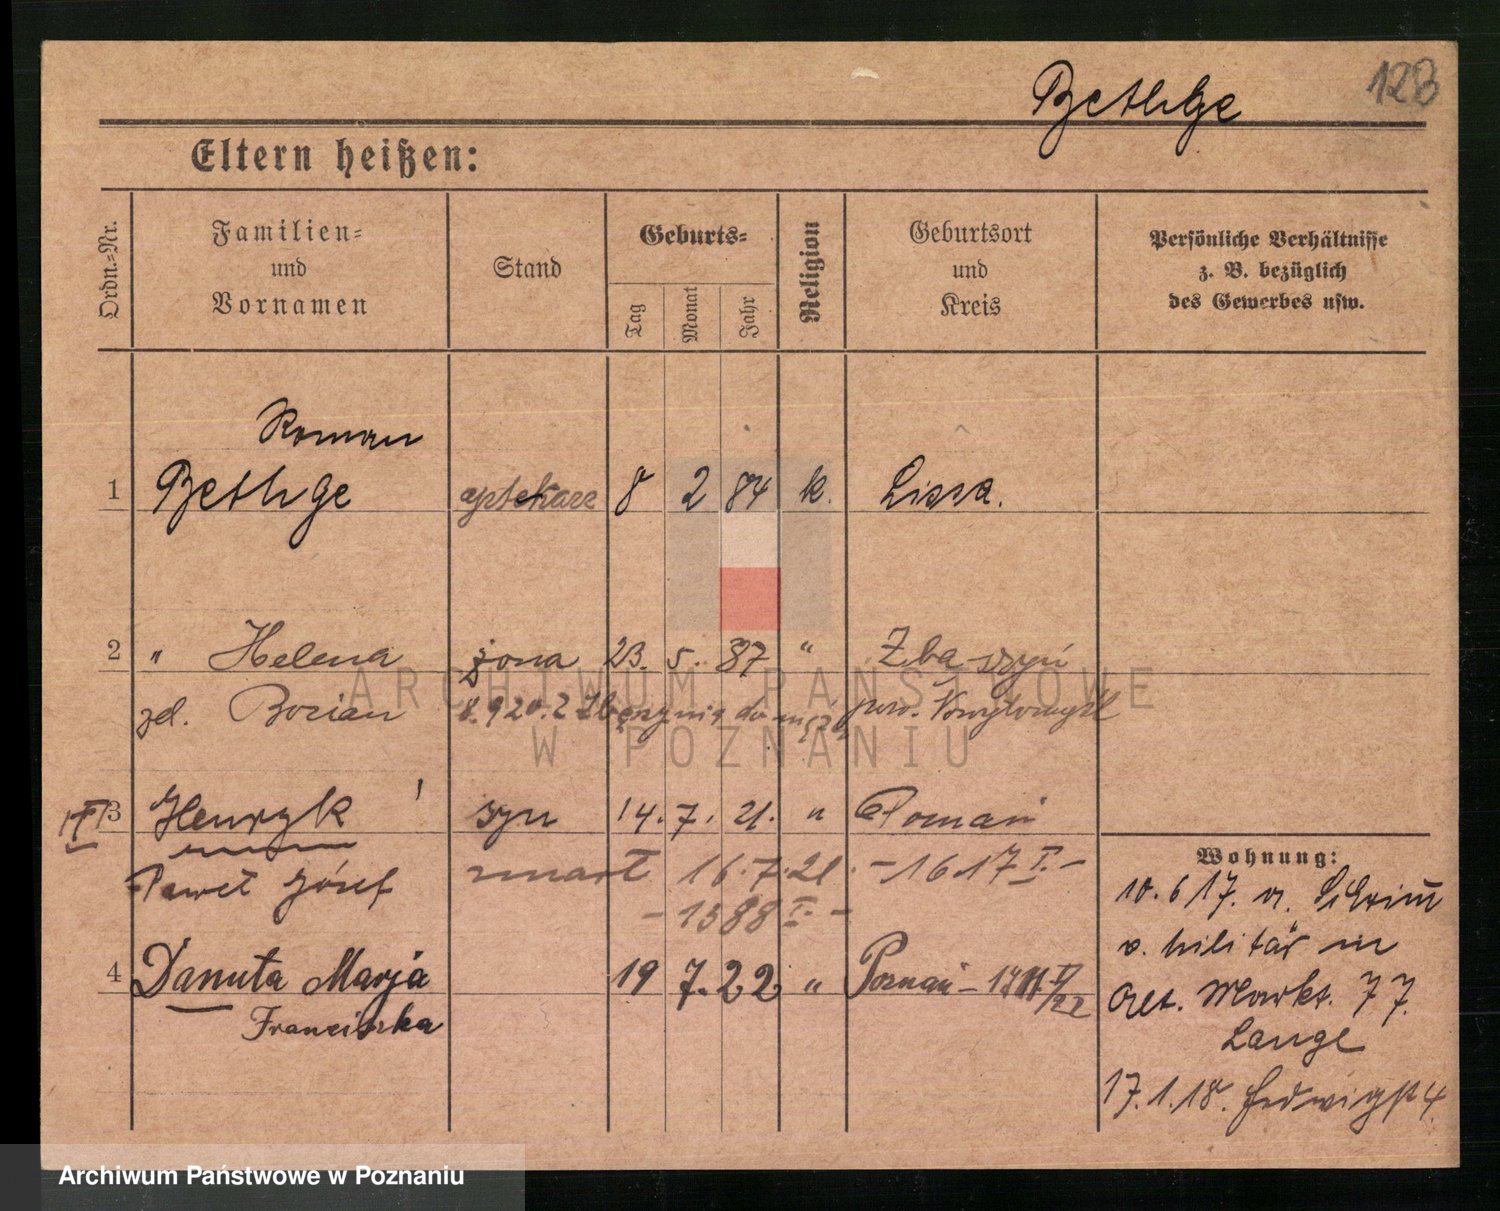 Bethge
123
Eltern heißen:
Ordn.-Nr.
Familien-
und
Vornamen
Stand
Geburts-
Tag
Monat
Jahr
Religion
Geburtsort
und
Kreis
Persönliche Verhältnisse
z. B. bezüglich
des Gewerbes usw.
Roman
1 Bethge aptekarz 8 2 84 k. Lissa.
2 " Helena żona 23. 5. 87 " Zbąszyń
Bozian 8.9 20. z męża pow.
3 Henryk syn 14. 7. 21. " Poznań
Paweł Józef zmarł 16.7.21. -1617 I.-
-1588 I.-
4 Danuta Marja 19 7. 22 " Poznań
Franciszka
Wohnung:
10. 6 17. a.
v. Militär in
Alt. Markt. 77.
Lange
17.1.18. Hedwigst 4.
ARCHIWUM PAŃSTWOWE
W POZNANIU
Archiwum Państwowe w Poznaniu